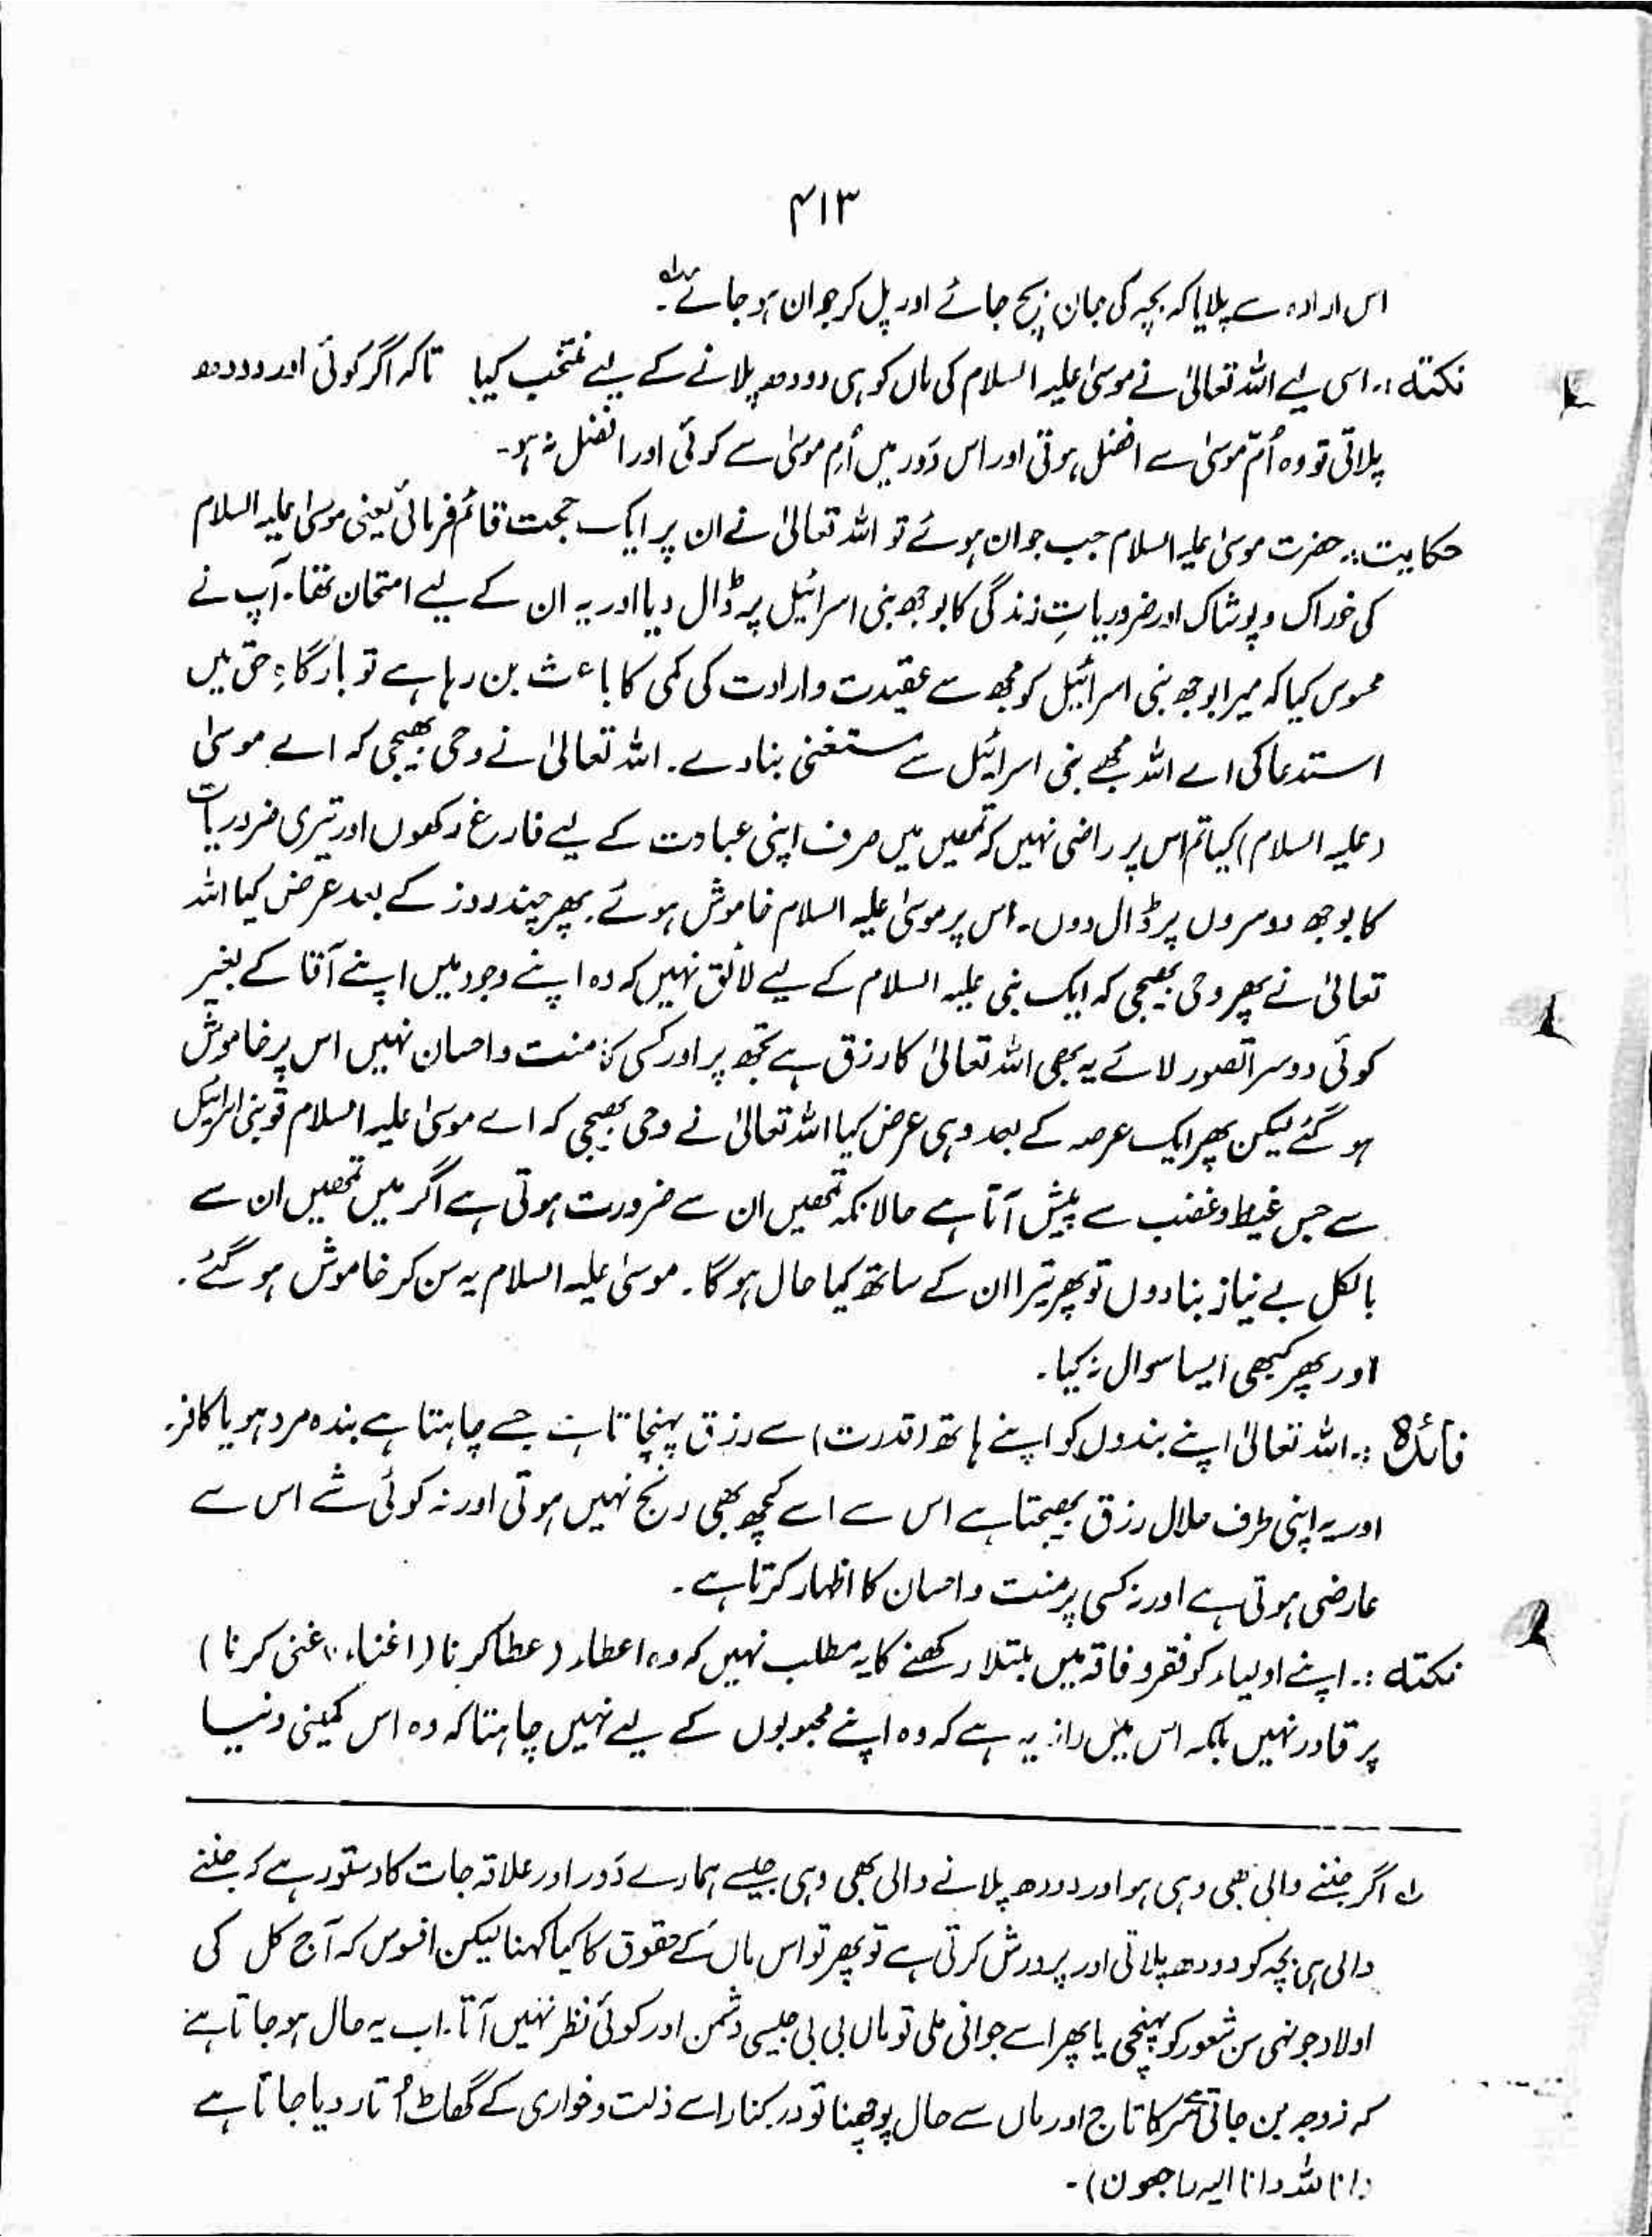 ۴۱۳
اس ارادہ سے پلایا کہ بچہ کی جان بچ جائے اور پل کر جوان ہو جائے۔
نکتہ :۔ اسی لیے اللہ تعالیٰ نے موسیٰ علیہ السلام کی ماں کو ہی دودھ پلانے کے لیے منتخب کیا تاکہ اگر کوئی اور دودھ
پلاتی تو وہ اُمّ موسیٰ سے افضل ہوتی اور اس دَور میں اُمِ موسیٰ سے کوئی اور افضل نہ ہو۔
حکایت :۔ حضرت موسیٰ علیہ السلام جب جوان ہوئے تو اللہ تعالیٰ نے ان پر ایک حجت قائم فرمائی یعنی موسیٰ علیہ السلام
کی خوراک و پوشاک اور ضروریاتِ زندگی کا بوجھ بنی اسرائیل پر ڈال دیا اور یہ ان کے لیے امتحان تھا۔ آپ نے
محسوس کیا کہ میرا بوجھ بنی اسرائیل کو مجھ سے عقیدت و ارادت کی کمی کا باعث بن رہا ہے تو بارگاہِ حق میں
استدعا کی اے اللہ مجھے بنی اسرائیل سے مستغنی بنا دے۔ اللہ تعالیٰ نے وحی بھیجی کہ اے موسیٰ
(علیہ السلام) کیا تم اس پر راضی نہیں کہ تمھیں میں صرف اپنی عبادت کے لیے فارغ رکھوں اور تیری ضروریات
کا بوجھ دوسروں پر ڈال دوں۔ اس پر موسیٰ علیہ السلام خاموش ہوئے۔ پھر چند روز کے بعد عرض کیا اللہ
تعالیٰ نے پھر وحی بھیجی کہ ایک نبی علیہ السلام کے لیے لائق نہیں کہ وہ اپنے وجود میں اپنے آقا کے بغیر
کوئی دوسرا تصور لائے یہ بھی اللہ تعالیٰ کا رزق ہے تجھ پر اور کسی کا منت و احسان نہیں اس پر خاموش
ہو گئے لیکن پھر ایک عرصہ کے بعد وہی عرض کیا اللہ تعالیٰ نے وحی بھیجی کہ اے موسیٰ علیہ السلام تو بنی اسرائیل
سے جس غیظ و غضب سے پیش آتا ہے حالانکہ تمھیں ان سے ضرورت ہوتی ہے اگر میں تمھیں ان سے
بالکل بے نیاز بنا دوں تو پھر تیرا ان کے ساتھ کیا حال ہو گا۔ موسیٰ علیہ السلام یہ سن کر خاموش ہو گئے۔
اور پھر کبھی ایسا سوال نہ کیا۔
فائدہ :۔ اللہ تعالیٰ اپنے بندوں کو اپنے ہاتھ (قدرت) سے رزق پہنچاتا ہے جسے چاہتا ہے بندہ مرد ہو یا کافر۔
اور یہ اپنی طرف حلال رزق بھیجتا ہے اس سے اسے کچھ بھی رنج نہیں ہوتی اور نہ کوئی شے اس سے
عارضی ہوتی ہے اور نہ کسی پر منت و احسان کا اظہار کرتا ہے۔
نکتہ :۔ اپنے اولیاء کو فقر و فاقہ میں مبتلا رکھنے کا یہ مطلب نہیں کہ وہ اعطاء (عطا کرنا (اغناء، غنی کرنا)
پر قادر نہیں بلکہ اس میں راز یہ ہے کہ وہ اپنے محبوبوں کے لیے نہیں چاہتا کہ وہ اس کمینی دنیا
لہ اگر جننے والی بھی وہی ہو اور دودھ پلانے والی بھی وہی جیسے ہمارے دَور اور علاقہ جات کا دستور ہے کہ جننے
والی ہی بچہ کو دودھ پلاتی اور پرورش کرتی ہے تو پھر تو اس ماں کے حقوق کا کیا کہنا لیکن افسوس کہ آج کل کی
اولاد جونہی سن شعور کو پہنچی یا پھر اسے جوانی ملی تو ماں بی بی جیسی دشمن اور کوئی نظر نہیں آتا۔ اب یہ حال ہو جاتا ہے
کہ زوجہ بن جاتی ہے سر کا تاج اور ماں سے حال پوچھنا تو درکنار اسے ذلت و خواری کے گھاٹ اُتار دیا جاتا ہے
(انا للہ وانا الیہ راجعون)۔